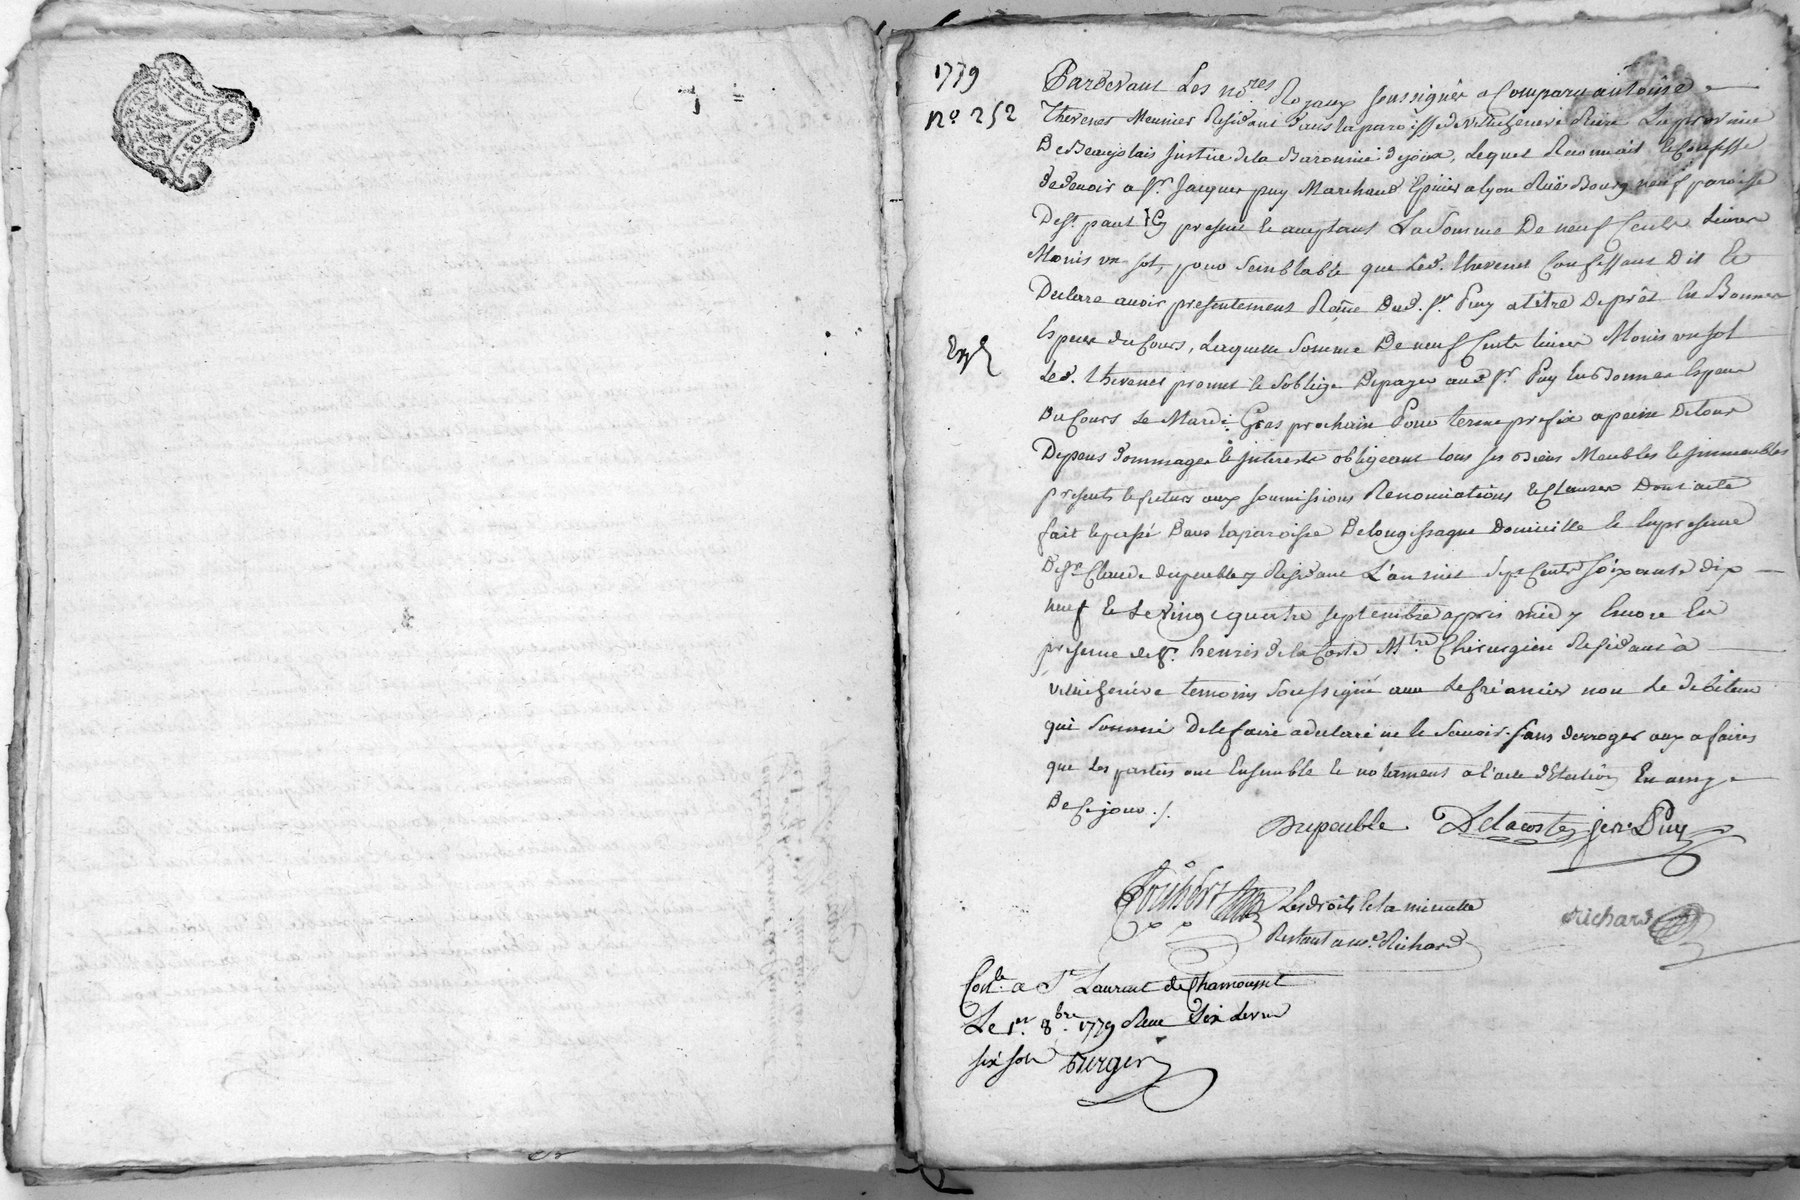 1779
N.o 252
Pardevant Les no.res Royaux soussignés a Comparu antoine
Thevenet Meunier Residant dans la paroisse de villechenève Rière La province
De Beaujolais Justice de la Baronnie de joux, Lequel Reconnait et Confesse
de devoir a s.r Jacques puy Marchand Epicier a lyon Rüe Bourg neuf paroisse
De s.t paul icy present et aceptant La Somme De neuf Cents Livres
Moins un sol, pour Semblable que Led. thevenet Confessant Dit et
Declare avoir presentement Reçüe Dud. s.r Puy a titre De prêt En Bonnes
Especes du Cours, Laquelle Somme De neuf Cents livres Moins un sol
Led. thevenet promet et S'oblige De payer aud s.r Puy En Bonnes Especes
Du Cours Le Mardi Gras prochain Pour terme prefix a peine De tous
Depens dommages et interests obligeant tous ses Biens Meubles et immeubles
presents et futurs aux soumissions Renonciations et Clauses Dont acte
fait et passé Dans la paroisse De longessaque Domicille et En presence
De s.r Claude dupeuble y Residant L'an mil Sept Cents soixante dix
neuf et Le vingt quatre septembre après midy Encore En
presence de s.r henris de la Coste M.tre Chirurgien Residant à
villechenève temoins Soussigné avec Le Créancier non Le debiteur
qui Sommé De le faire a declaré ne le Savoir. sans derroger aux afaires
que Les parties ont Ensemble et notament a l'acte d'Election En amy
De Ce jour ./.
Dupeuble Delacoste jcr.e Puy
Les droits et la minutte
Restant a m.e Richard
richard
Exp.é
Con.lé a S.t Laurent de Chamousset
Le 1.er 8.bre 1779 Reçu Six livres
six sols Berger